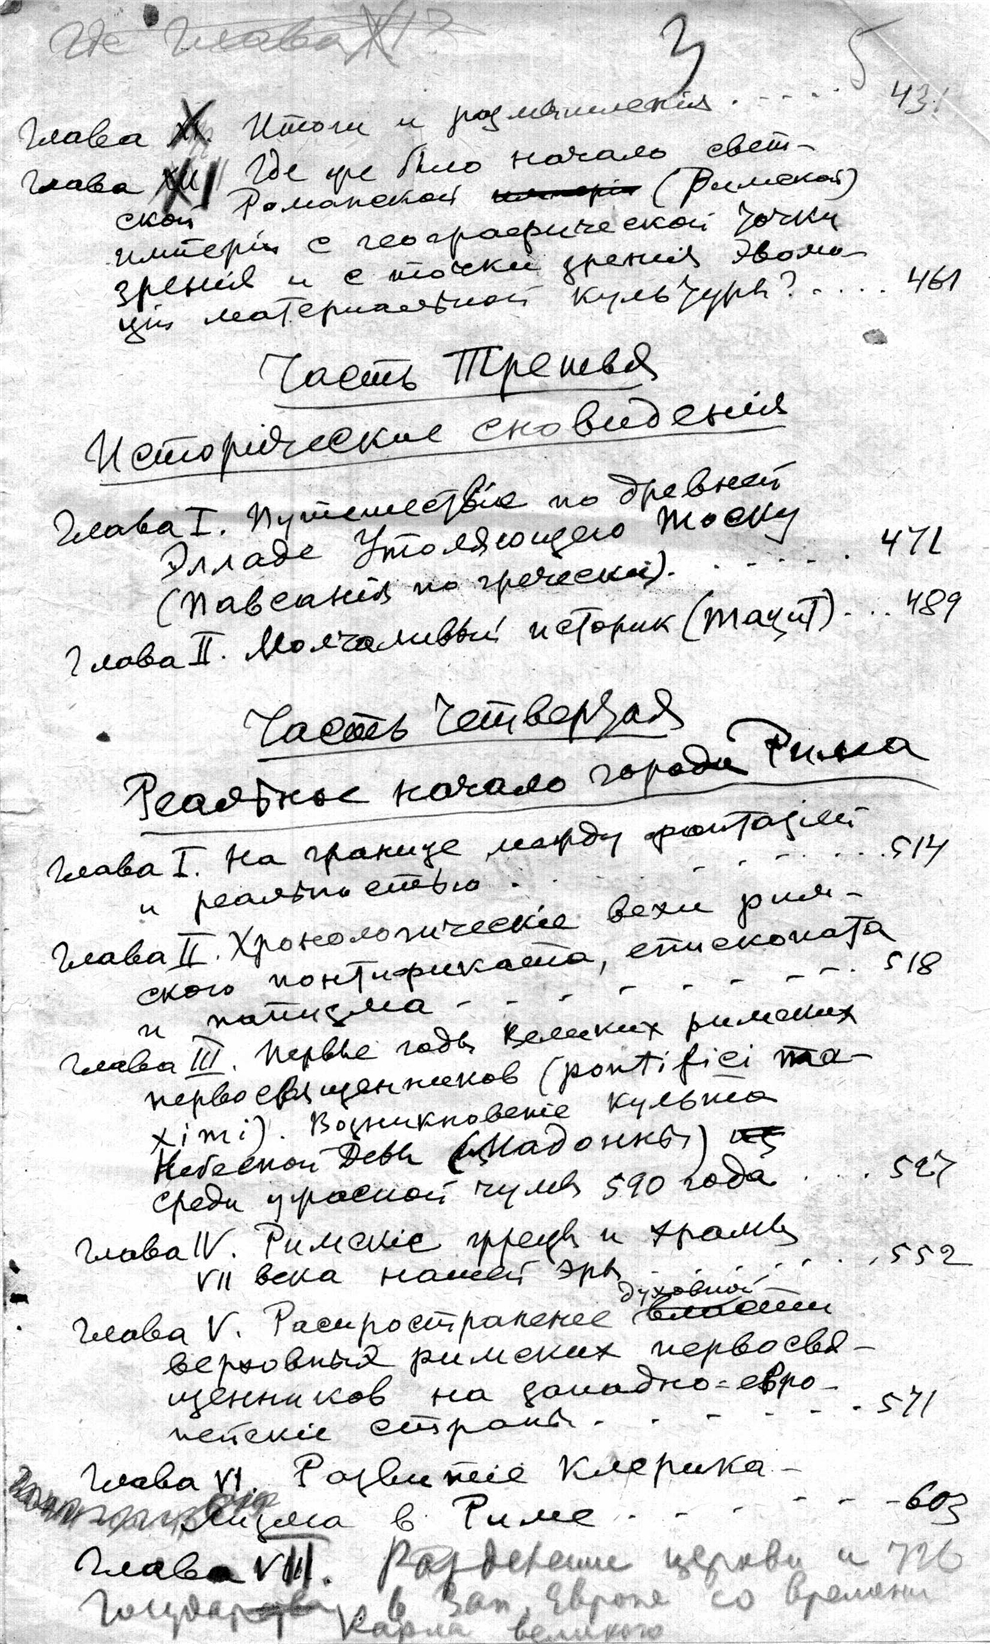 Где глава XI?
3 5
Глава XI. Итоги и размышленія. . . . . 431
Глава XII Где же было начало свет-
ской Романской имперіи (Римской)
имперіи с географической точки
зренія и с точки зренія эволю-
ціи матеріальной культуры? . . . . 461
Часть Третья
Исторические сновиденія
Глава I. Путешествіе по древней
Элладе Утоляющего Тоску
(Павсанія по гречески). . . . . . 471
Глава II. Молчаливый историк (Тацит). . . . 489
Часть Четвертая
Реальное начало города Рима
Глава I. На границе между фантазіей
и реальностью . . . . . . . . . . 514
Глава II. Хронологическіе вехи рим-
ского понтификата, епископата
и папизма - - - - - - - - - . 518
Глава III. Первые годы великих римских
первосвященников (pontifici ma-
ximi). Возникновеніе культа
Небесной Девы (Мадонны)
среди ужасной чумы 590 года . . . 527
Глава IV. Римскіе жрецы и храмы
VII века нашей эры . . . . . . . . 552
духовной
Глава V. Распространеніе власти
верховных римских первосвя-
щенников на западно=евро-
пейскіе страны. . . . - - - . 571
Глава VI. Развитіе клерика-
лизма в Риме . . - - - - - 603
Глава VII. Разделение церкви и 726
государства в Зап. Европе со времени
Карла великого